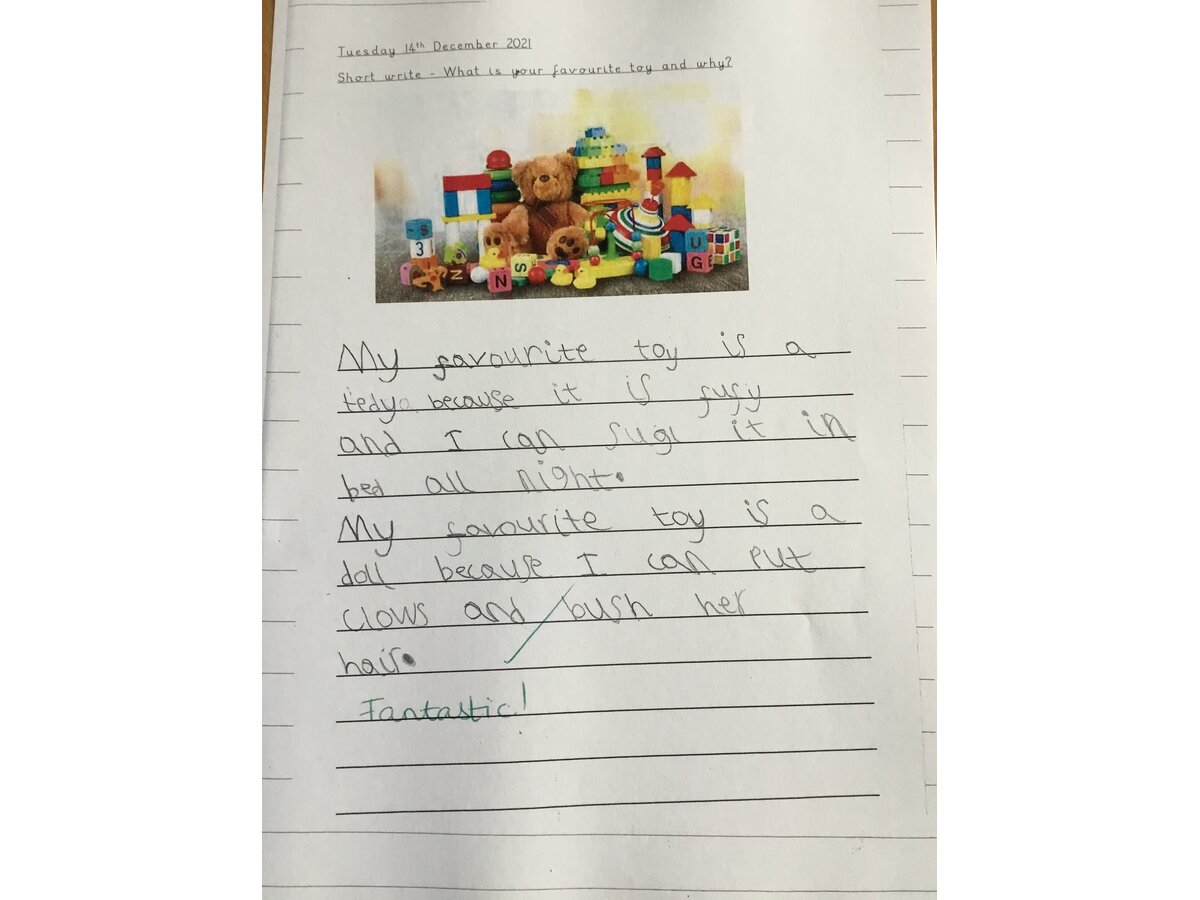 Tuesday 14th December 2021
Short write - What is your favourite toy and why?
S
3
N
N
S
U
G
My favourite toy is a
tedy because it is fufy
and I can sugl it in
bed all night.
My favourite toy is a
doll because I can put
clows and bush her
hair.
Fantastic!